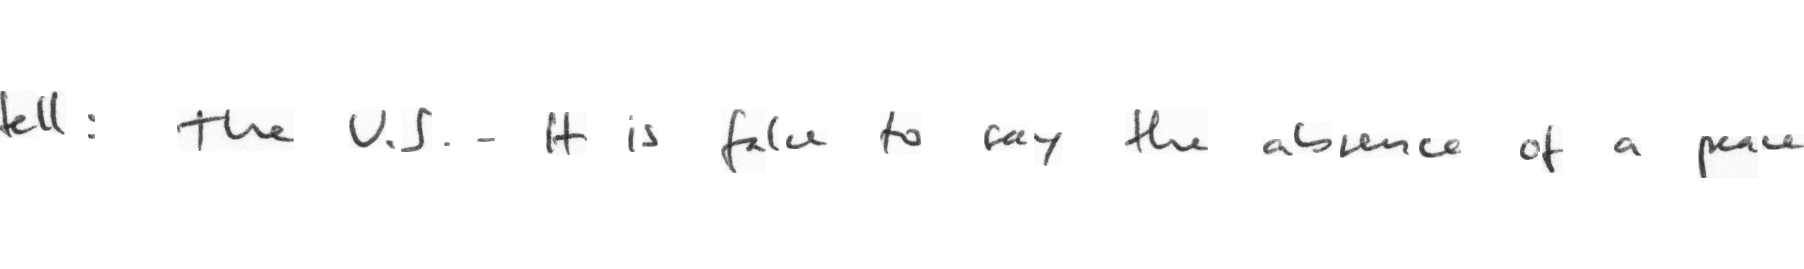 tell: The U.S. - It is false to say the absence of a peace